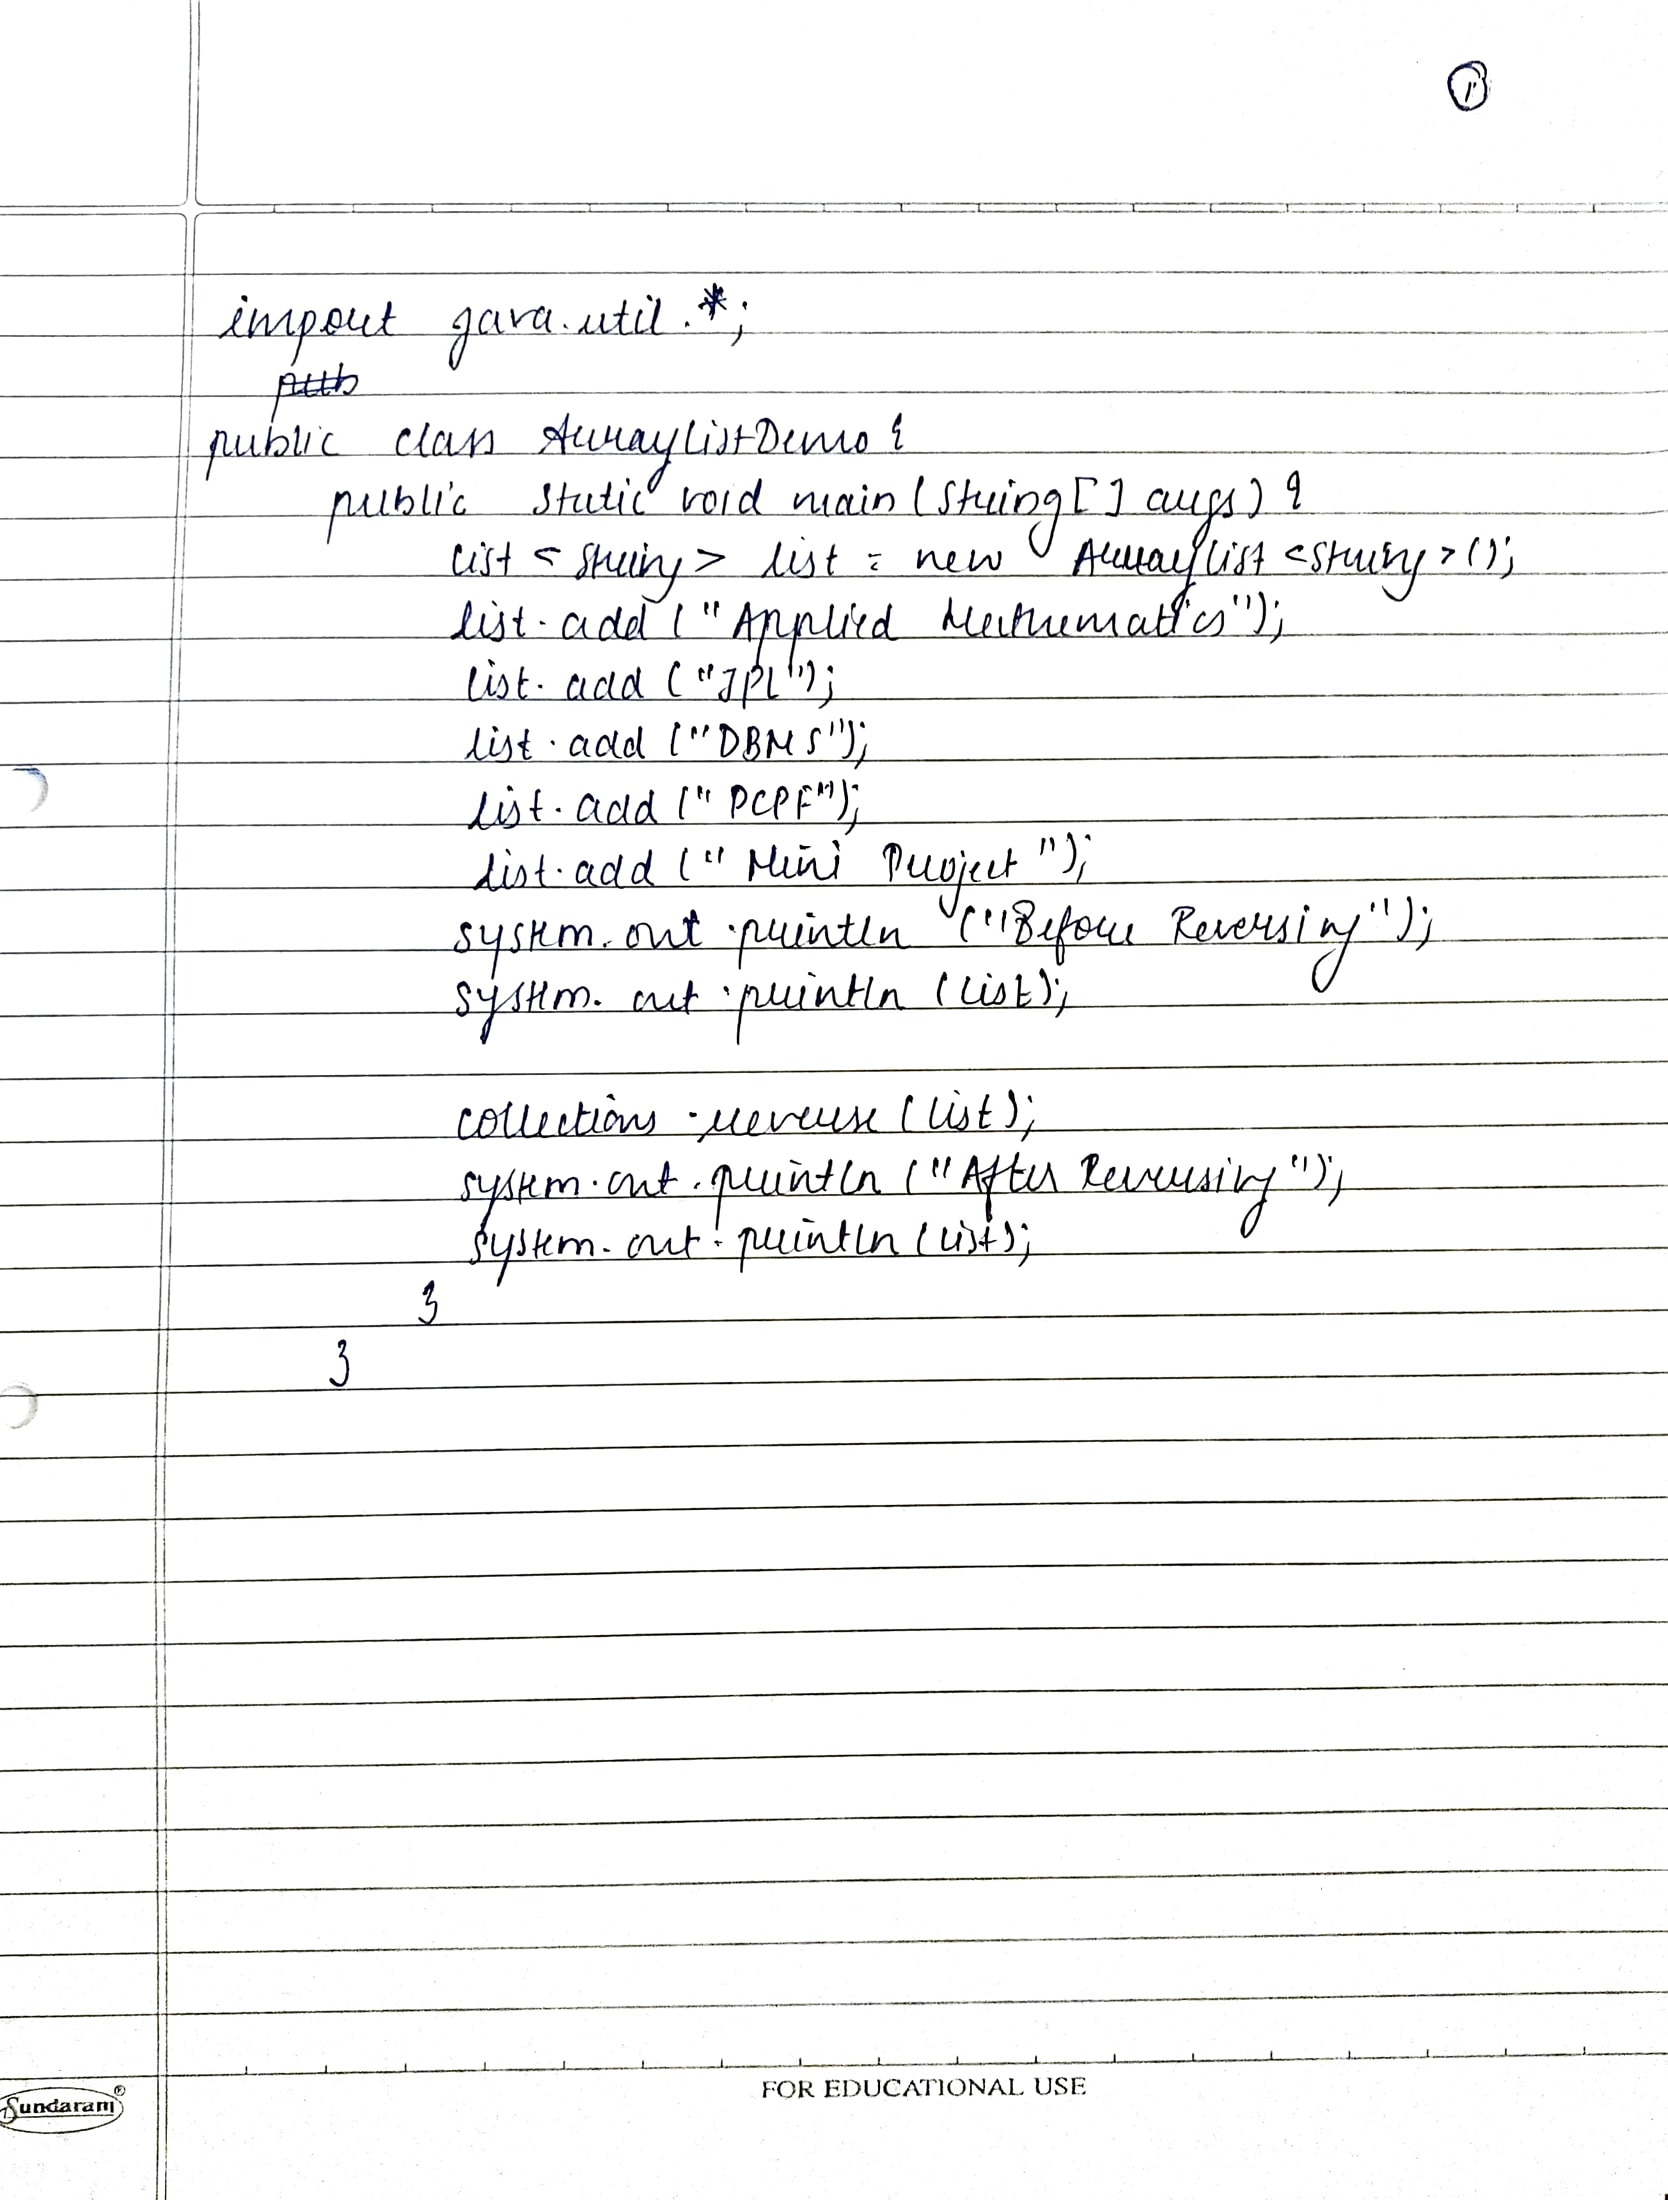 1
import java.util.*;
public class ArrayListDemo {
public static void main (String[] args) {
List <String> list = new ArrayList <String> ();
list.add ("Applied Mathematics");
list.add ("JPL");
list.add ("DBMS");
list.add ("PCPF");
list.add ("Mini Project");
system.out.println ("Before Reversing");
system.out.println (list);
collections.reverse (list);
system.out.println ("After Reversing");
system.out.println (list);
}
}
FOR EDUCATIONAL USE
Sundaram